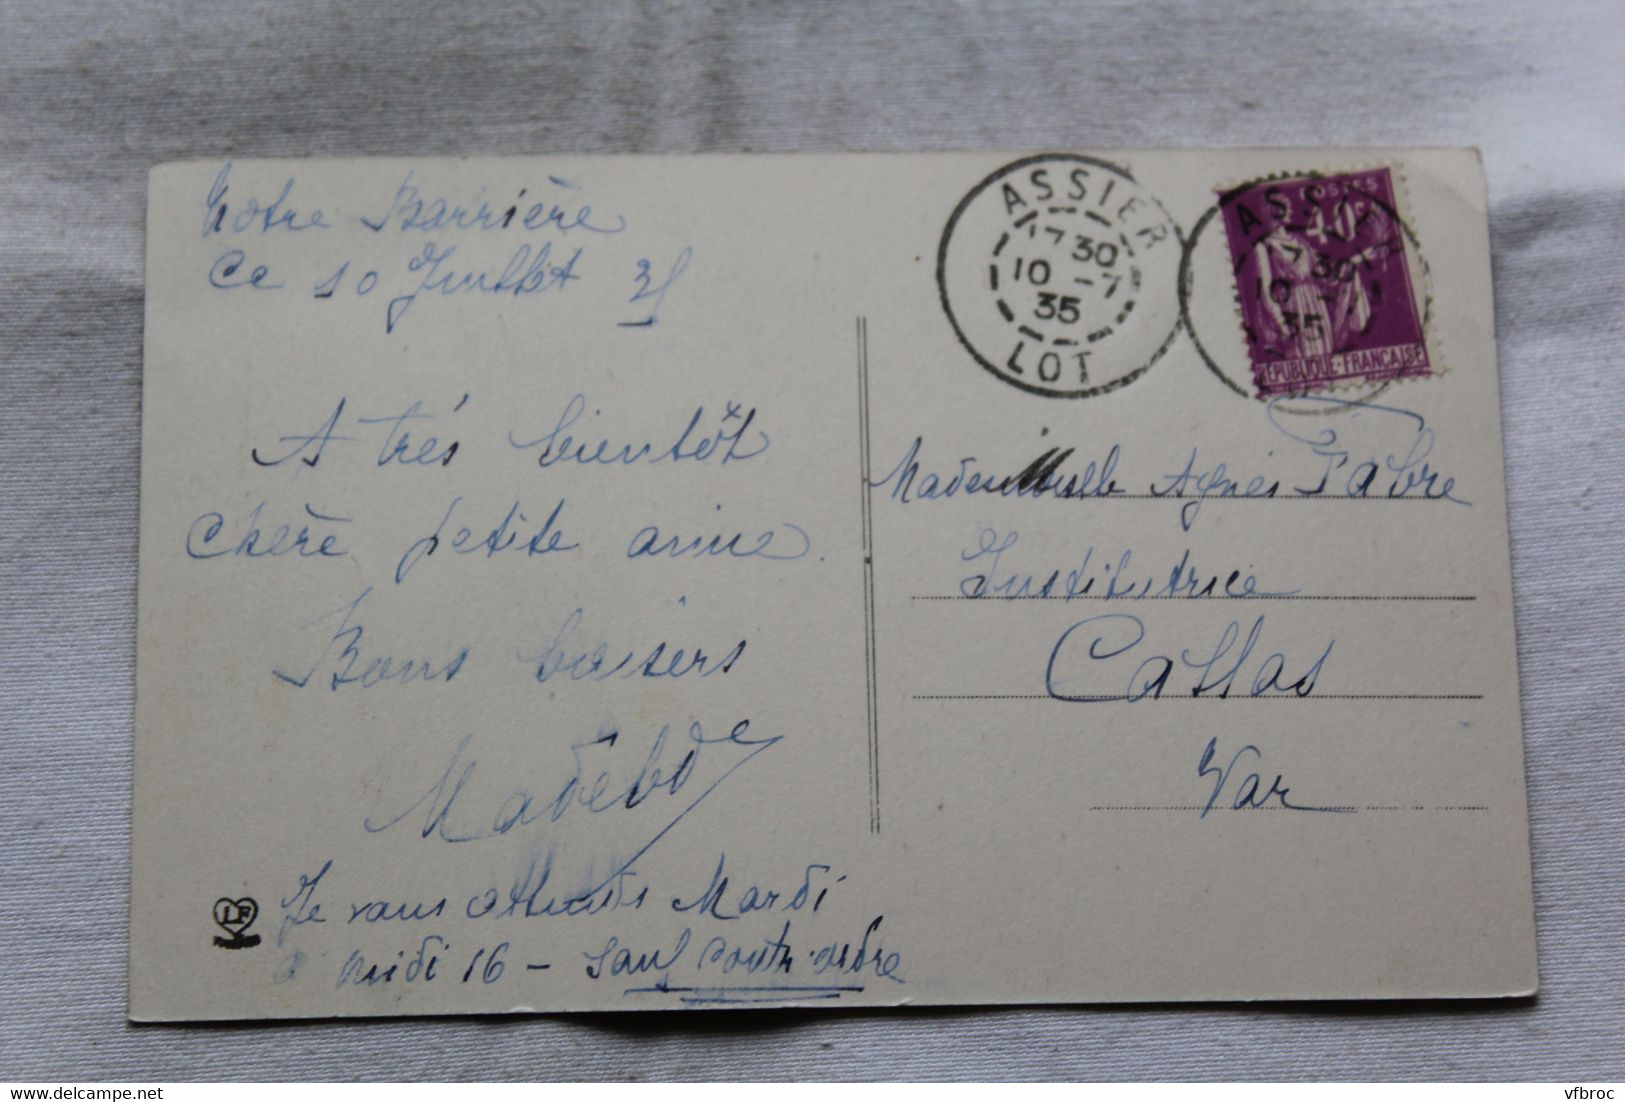 Notre Barrière
Ce 10 Juillet 35
A très bientôt
chère petite amie
Bons baisers
Je vous attends Mardi
à midi 16 - sauf contr-ordre
LF
ASSIER
17 30
10 - 7
35
LOT
ASSIER
17 30
10 - 7
35
POSTES
40c
RÉPUBLIQUE-FRANÇAISE
Mademoiselle Agnès Fabre
Institutrice
Callas
Var
delcampe.net
vfbroc